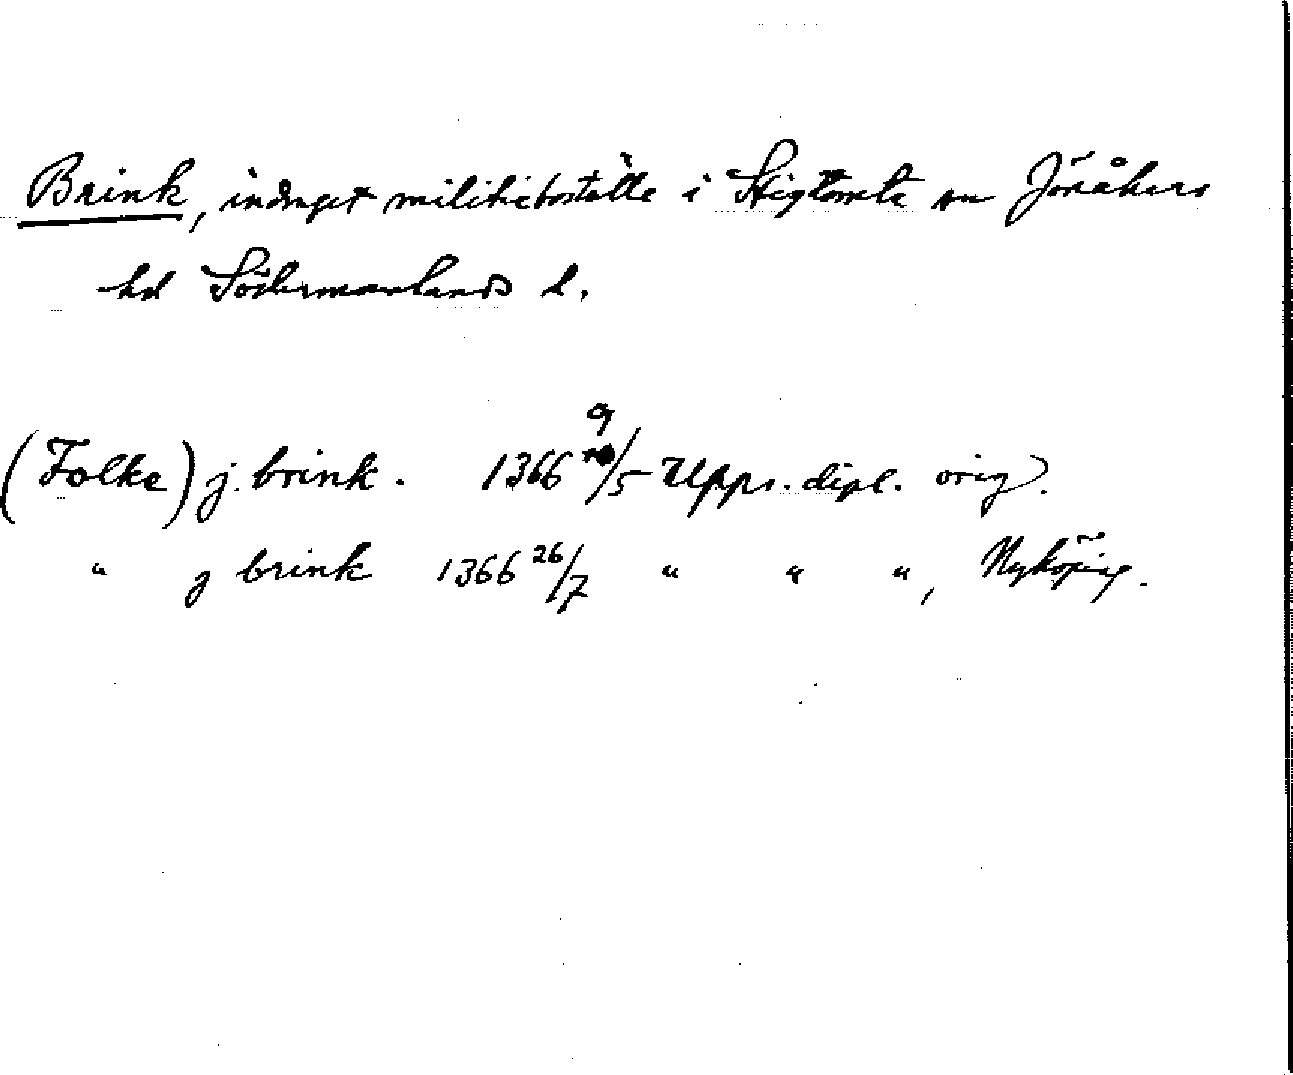 Brink, indraget militieboställe i Stigtomta sn Jönåkers
hd Södermanlands l.
(Folke) j. brink. 1366 9/5 Upps. dipl. orig.
" j brink 1366 26/7 " " ", Nyköping.